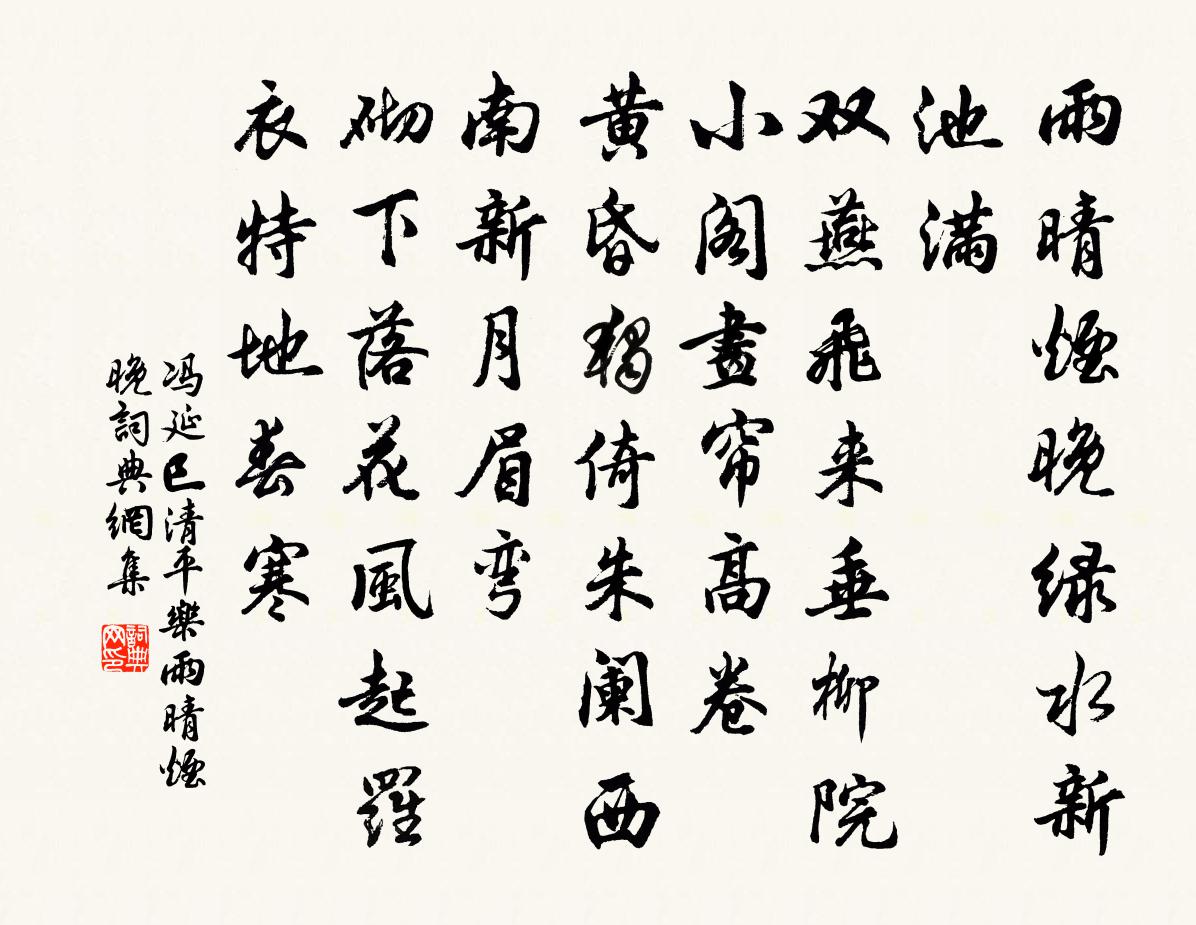 雨晴煙晚绿水新
池满
双燕飛来垂柳院
小阁畫帘高卷
黄昏獨倚朱阑西
南新月眉弯
砌下落花風起羅
衣特地春寒
冯延巳清平樂雨晴煙
晚詞典網集
詞典网印